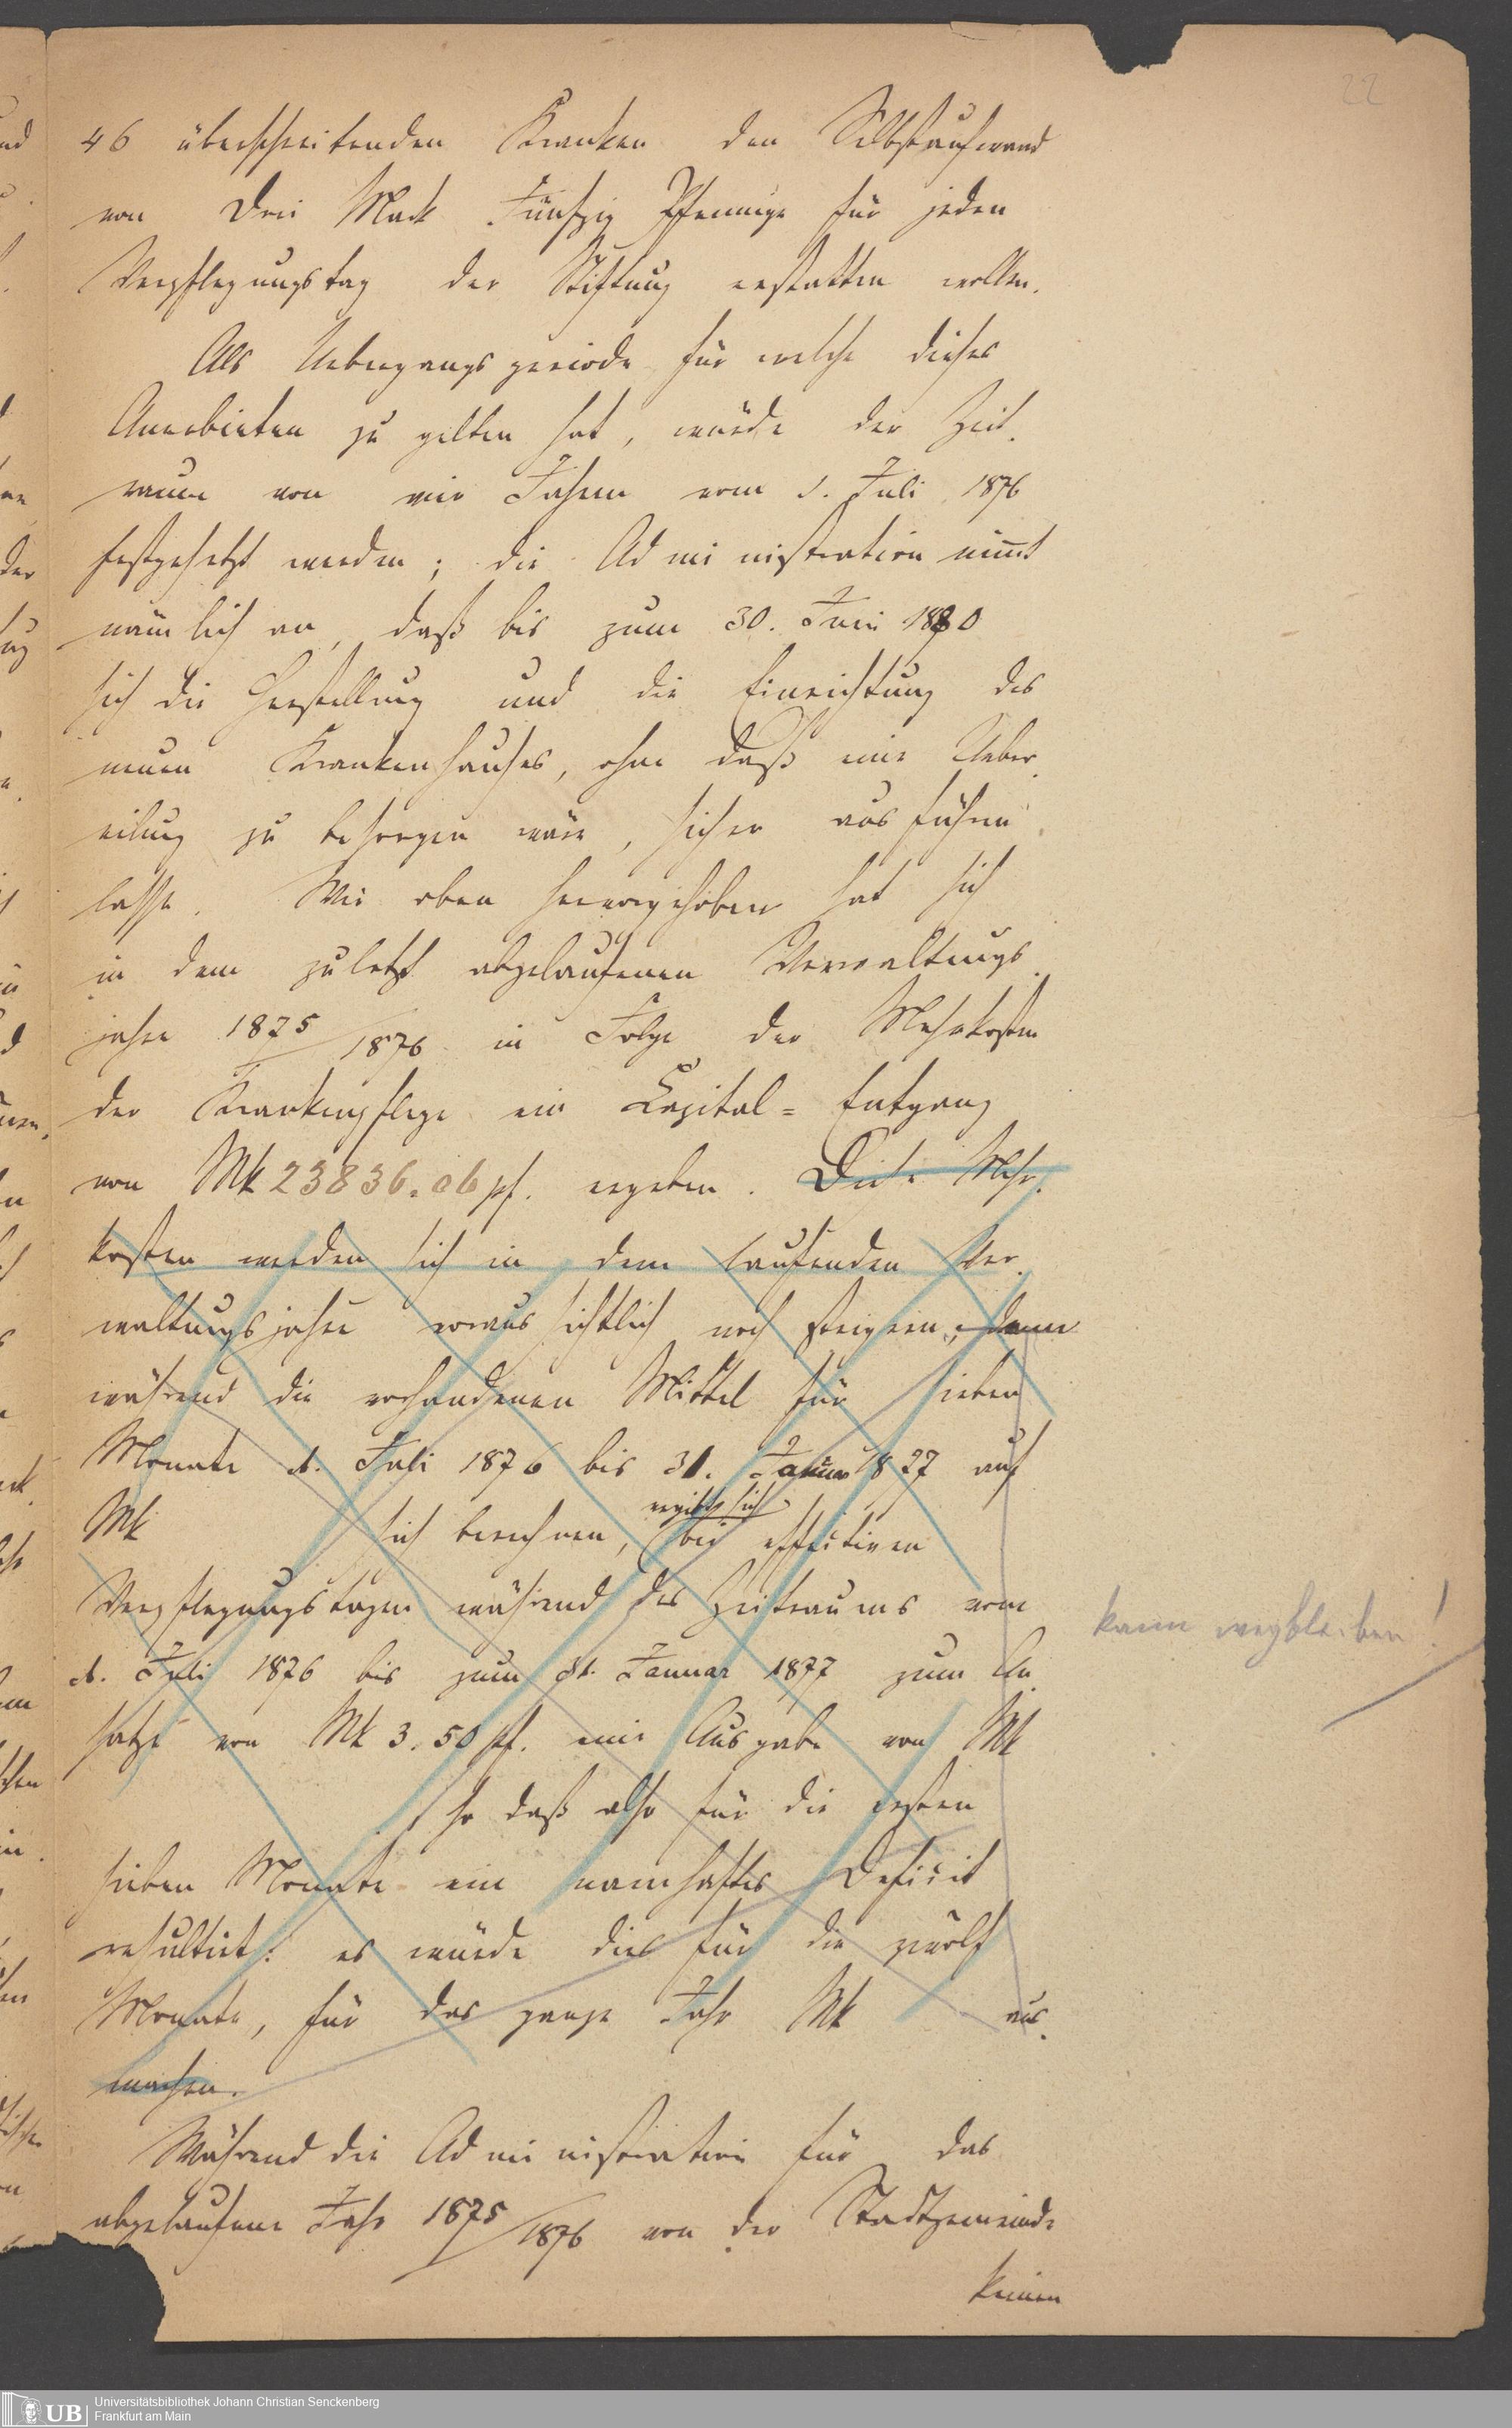 22
46 überschreitenden Kranken den Selbstaufwand
von Drei Mark Fünfzig Pfennige für jeden
Verpflegungstag der Stiftung erstatten wollen.
Als Uebergangsperiode für welche dieses
Anerbieten zu gelten hat, würde der Zeit-
raum von vier Jahren vom 1. Juli 1876
festgesetzt werden; die Administration nimt
nämlich an, daß bis zum 30. Juni 1880
sich die Herstellung und die Einrichtung des
neuen Krankenhauses, ohne daß eine Ueber-
eilung zu besorgen wäre, sicher ausführen
lasse. Wie oben hervorgehoben hat sich
in dem zuletzt abgelaufenen Verwaltungs-
jahre 1875/1876 in Folge der Mehrkosten
der Krankenpflege ein Capital=Entgang
von Mk 23836.06 pf. ergeben. Diese Mehr-
kosten werden sich in dem laufenden Ver-
waltungsjahre voraussichtlich noch steigern, denn
während die vorhandenen Mittel für sieben
Monate 1. Juli 1876 bis 31. Januar 1877 auf
Mk sich berechnen, ergibt sich bei effectiven
Verpflegungstagen während des Zeitraums vom
1. Juli 1876 bis zum 31. Januar 1877 zum An-
satze von Mk 3.50 pf. eine Ausgabe von Mk
so daß also für die ersten
sieben Monate ein namhaftes Deficit
resultirt: es würde dies für die zwölf
Monate, für das ganze Jahr Mk aus-
machen.
kann wegbleiben!
Während die Administration für das
abgelaufene Jahr 1875/1876 von der Stadtgemeinde
keinen
UB
Universitätsbibliothek Johann Christian Senckenberg
Frankfurt am Main